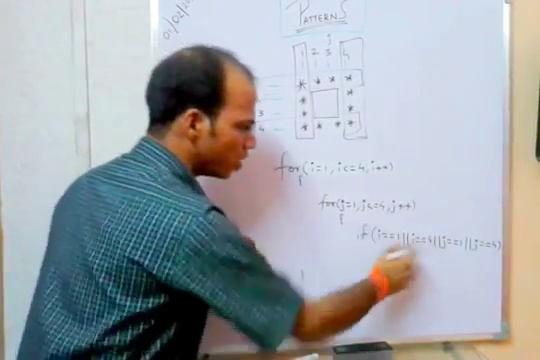 01/02/20
PATTERNS
j
1 2 3 4
* * * *
* *
3 * *
4 * * * *
for(i=1, i<=4, i++)
{
for(j=1, j<=4, j++)
{
if(i==1||i==4||j==1||j==4)